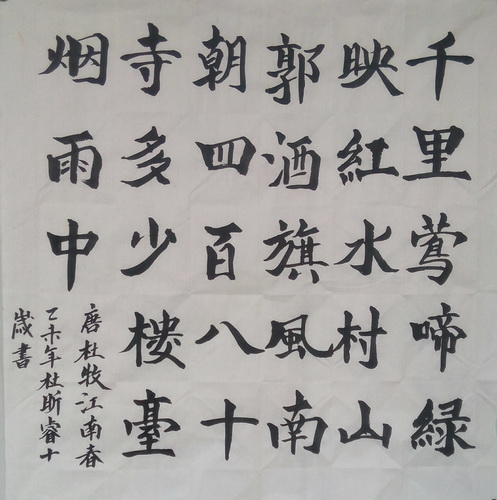 千里鶯啼緑
映紅水村山
郭酒旗風南
朝四百八十
寺多少楼臺
烟雨中
唐杜牧江南春
乙未年杜昕睿十
歲書